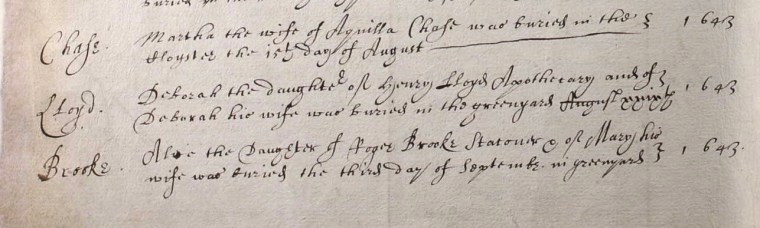 Chase. Martha the wife of Aquilla Chase was buried in the } 1643
Cloyster the 15th day of August
Lloyd. Deborah the daughter of Henry Lloyd Apothecary and of } 1643
Deborah his wife was buried in the greenyard August xxixth
Brooke. Alice the Daughter of Roger Brooke Stationer & of Mary his } 1643.
wife was buried the third day of Septembr. in greenyard